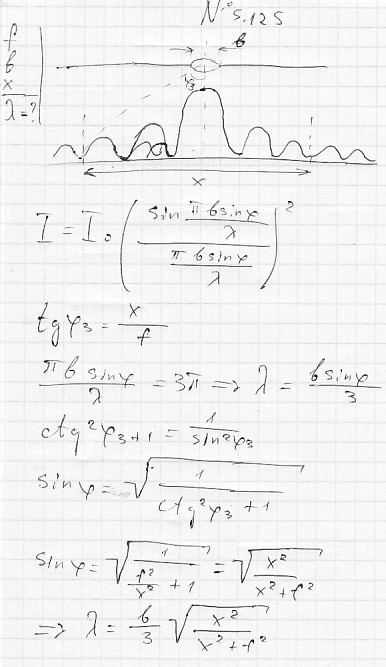 N:o 5.125
f
b
x
λ = ?
b
φ₃
x
I = I₀ (sin(πb sinφ/λ) / (πb sinφ/λ))²
tgφ₃ = x/f
πb sinφ/λ = 3π ⇒ λ = b sinφ/3
ctg²φ₃ + 1 = 1/sin²φ₃
sinφ = √(1/(ctg²φ₃ + 1))
sinφ = √(1/(f²/x² + 1)) = √(x²/(x² + f²))
⇒ λ = b/3 √(x²/(x² + f²))